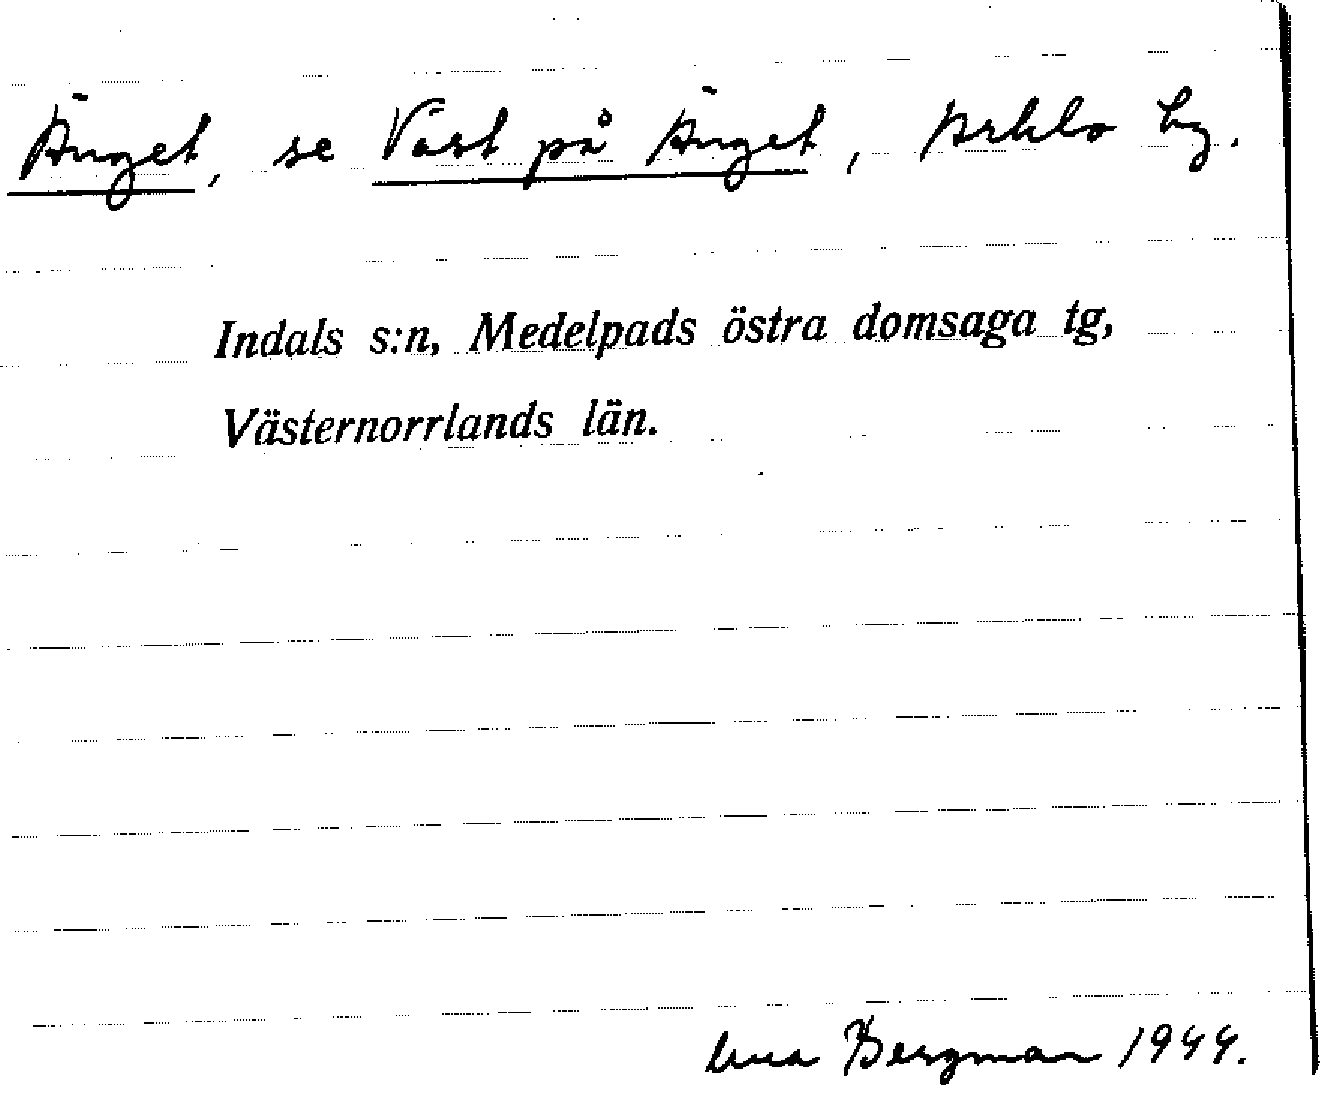 Änget, se Väst på Änget, Arklo by.
Indals s:n, Medelpads östra domsaga tg,
Västernorrlands län.
Bergman 1944.